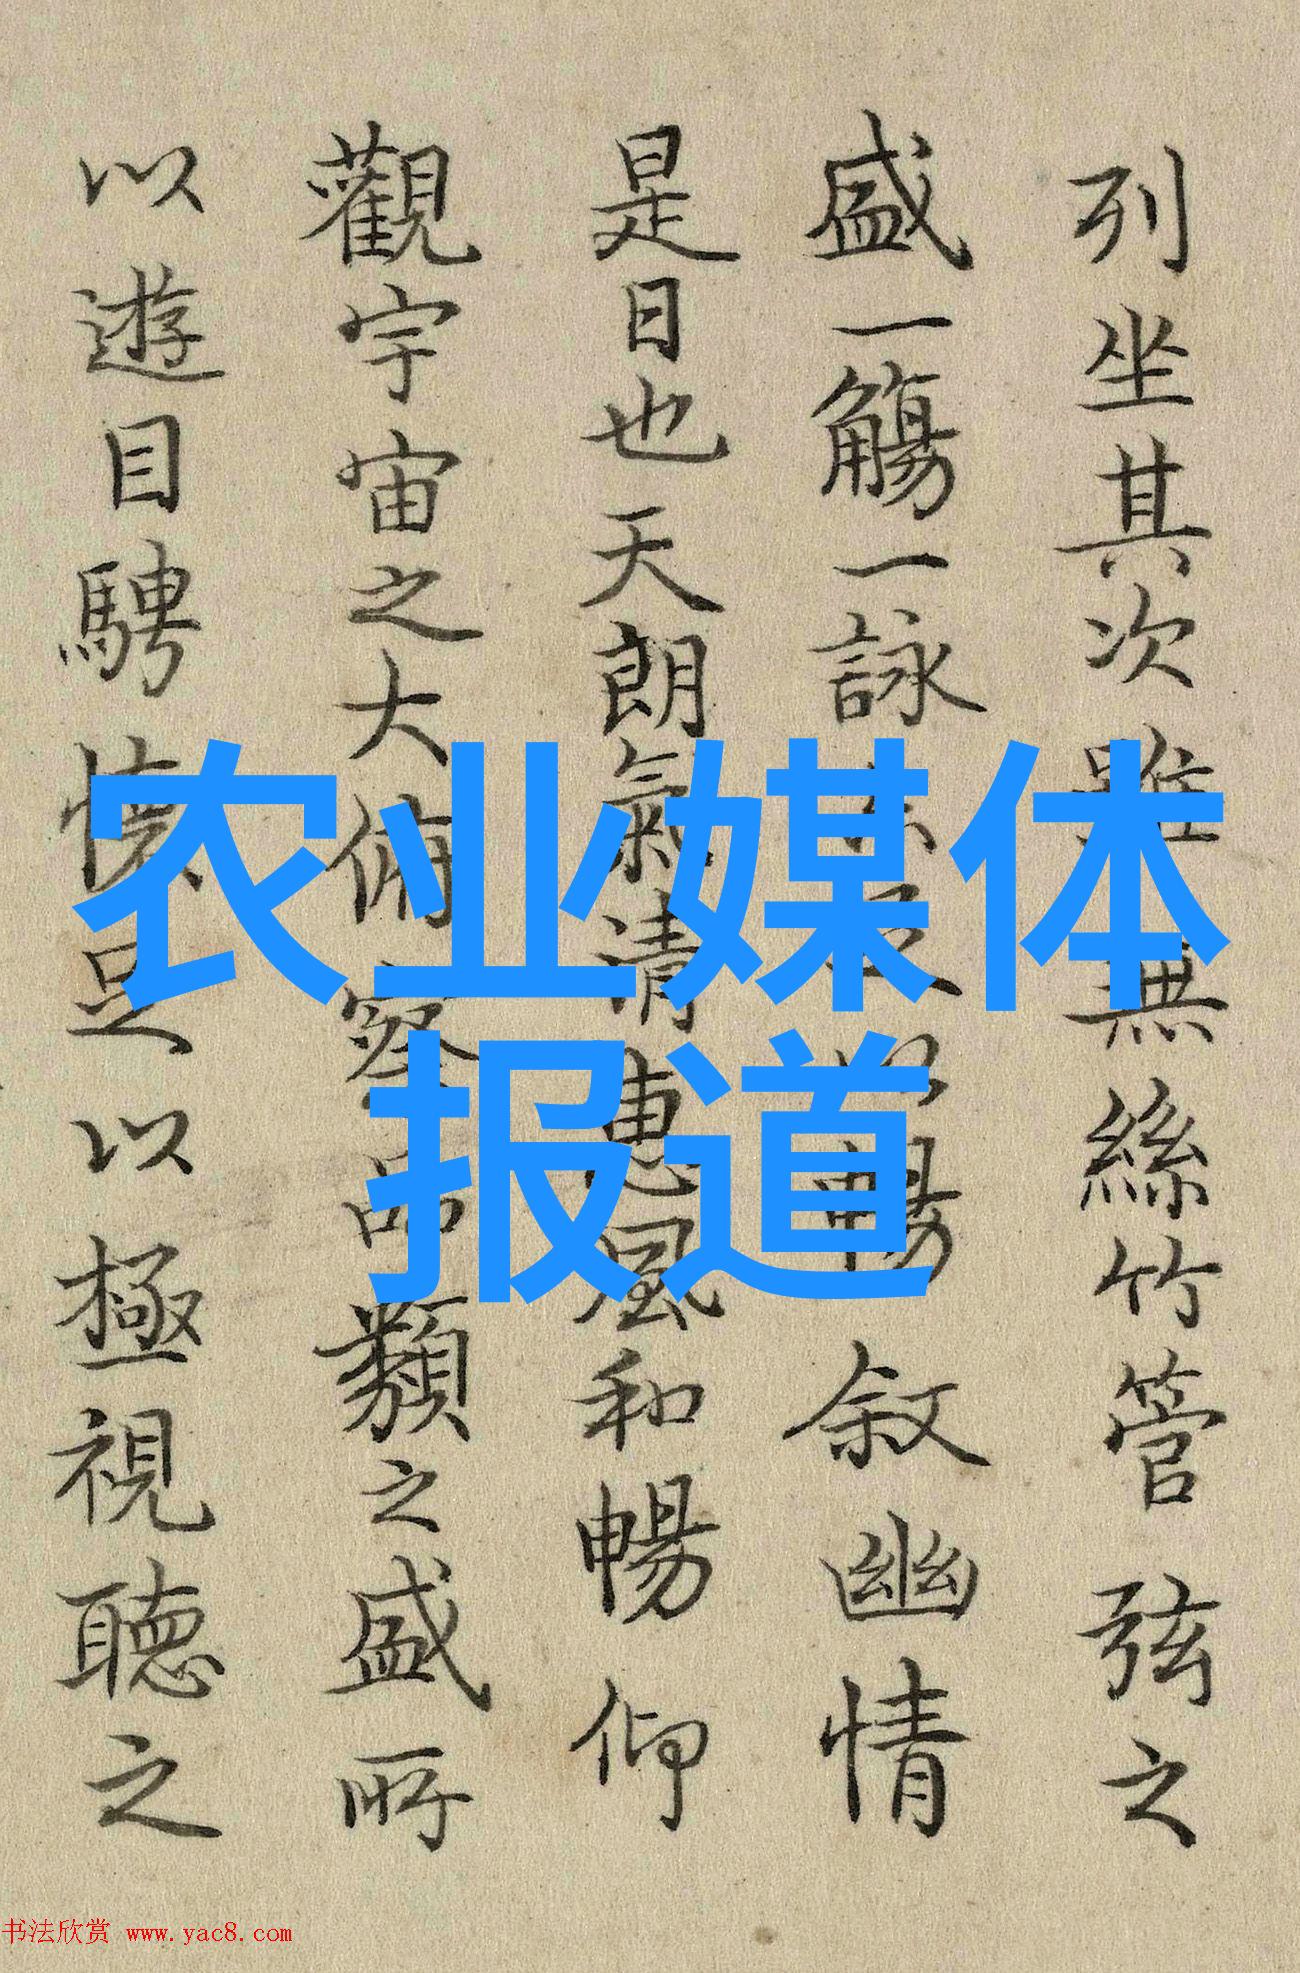 列坐其次雖無絲竹管弦之
盛一觴一詠亦足以暢叙幽情
是日也天朗氣清惠風和暢仰
觀宇宙之大俯察品類之盛所
以遊目騁懷足以極視聽之
农业媒体
报道
书法欣赏 www.yac8.com